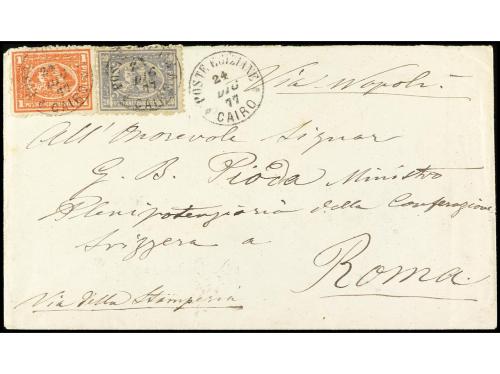 POSTE EGIZIANE
24
DIC
77
CAIRO
Via Napoli
All' Onorevole Signor
G. B. Pioda Ministro
Plenipotenziario della Conferazione
Svizzera a
Roma.
Via della Stamperia